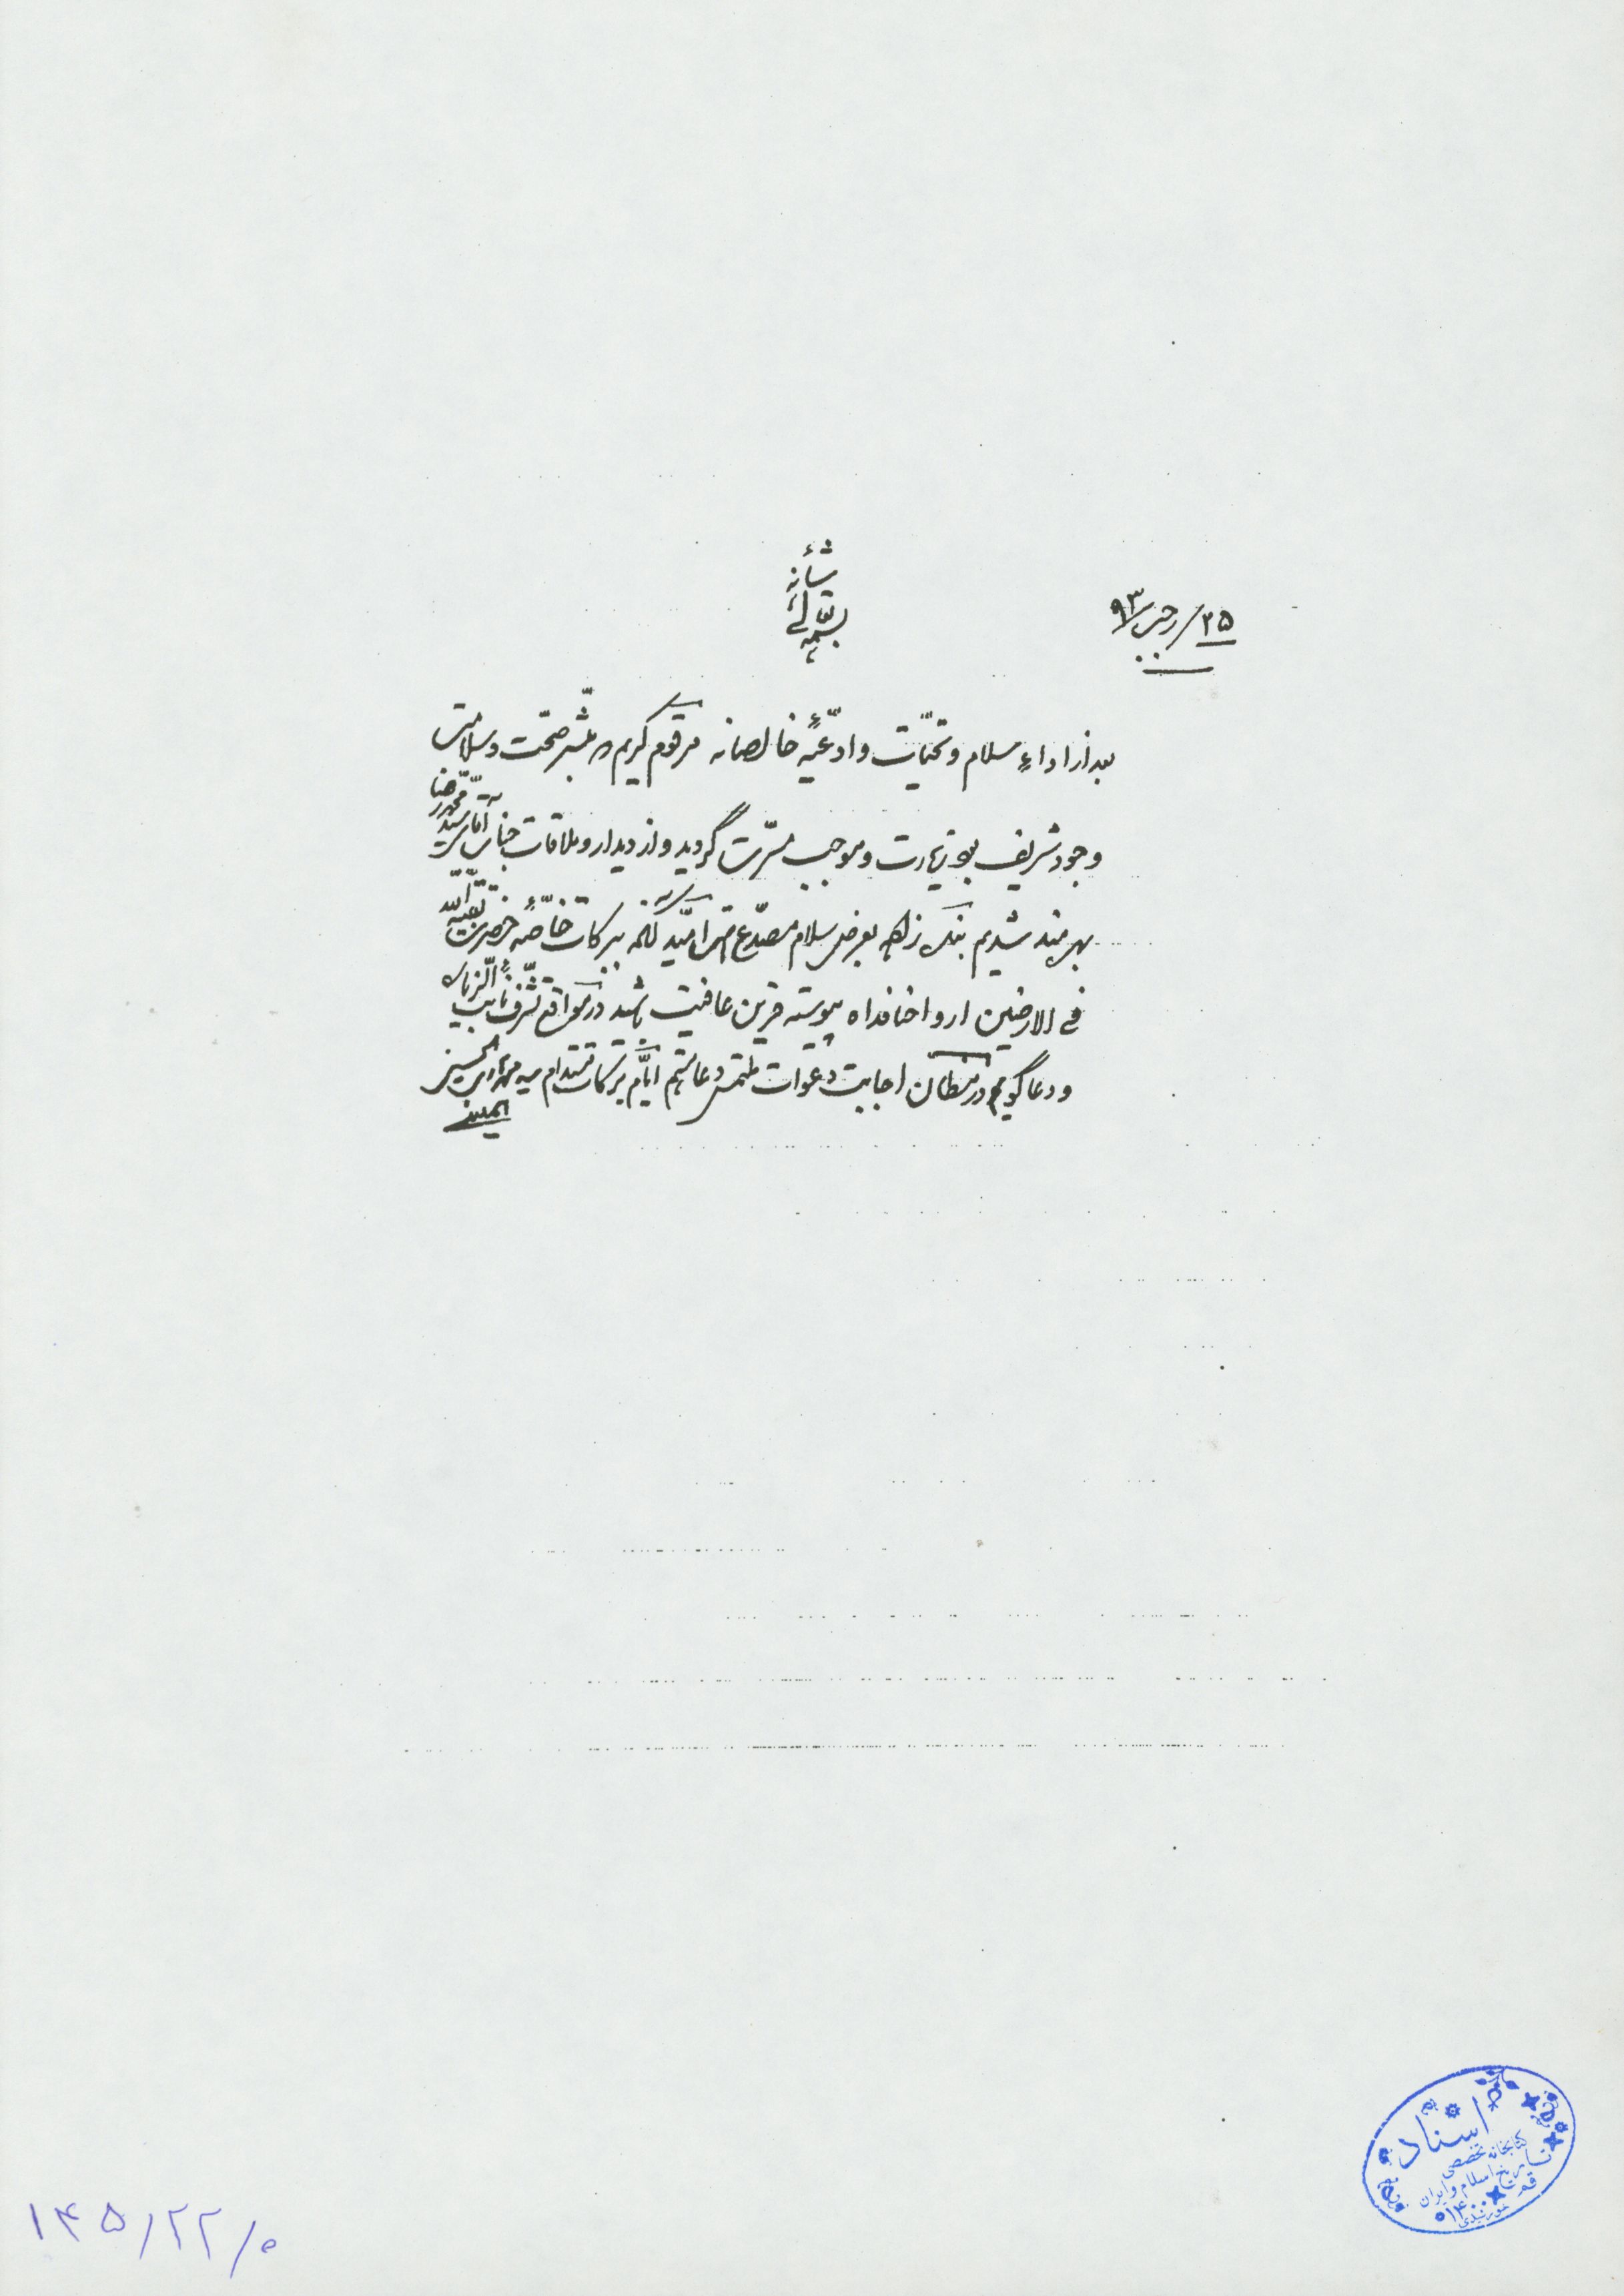 ۲۵/رجب/۹۳
بسمه تعالی شأنه
بعد از اداء سلام و تحیّات و ادعیّهٔ خالصانه مرقوم کریم که مبشّر صحّت و سلامتی
وجود شریف بود زیارت و موجب مسرّت گردید و از دیدار و ملاقات جناب آقای سیّد محمّدرضا
بهرمند شدیم بعرض سلام مصدّع امید آنکه ببرکات خاصّهٔ حضرت بقیّة اللّه
فی الارضین ارواحنا فداه پیوسته قرین عافیت باشید در مواقع تشرّف نایب الزیاره
و دعاگویم در مظانّ اجابت دعوات ملتمس دعا هستم ایّام برکات مستدام سید محمد هادی الحسینی
المیلانی
اسناد
کتابخانه تخصصی
تاریخ اسلام و ایران
قم
۱۴۵/۲۲/۰